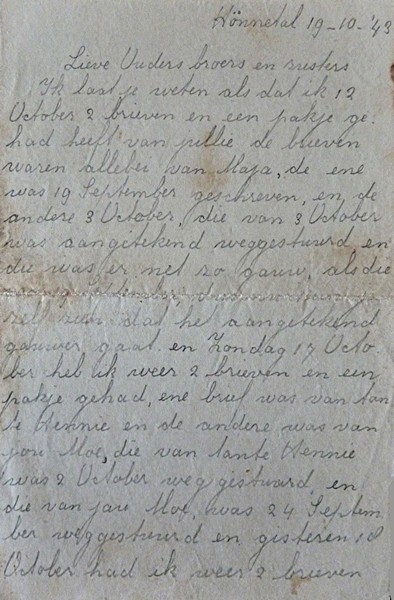 Hönnetal 19-10-'43
Lieve Ouders broers en zusters
Ik laat je weten als dat ik 12
October 2 brieven en een pakje ge.
had heeft van jullie de brieven
waren allebei van Maja, de ene
was 19 September geschreven, en de
andere 3 October, die van 3 October
was aangetekend weggestuurd, en
die was er net zo gauw, als die
September, dus nu kan je
zelf zien dat het aangetekend
gauwer gaat. en Zondag 17 Octo
ber heb ik weer 2 brieven en een
pakje gehad, ene brief was van tan
te Hennie en de andere was van
jou Moe, die van tante Hennie
was 2 October weg gestuurd, en
die van jou Moe, was 24 Septem
ber weggestuurd en gisteren 18
October had ik weer 2 brieven